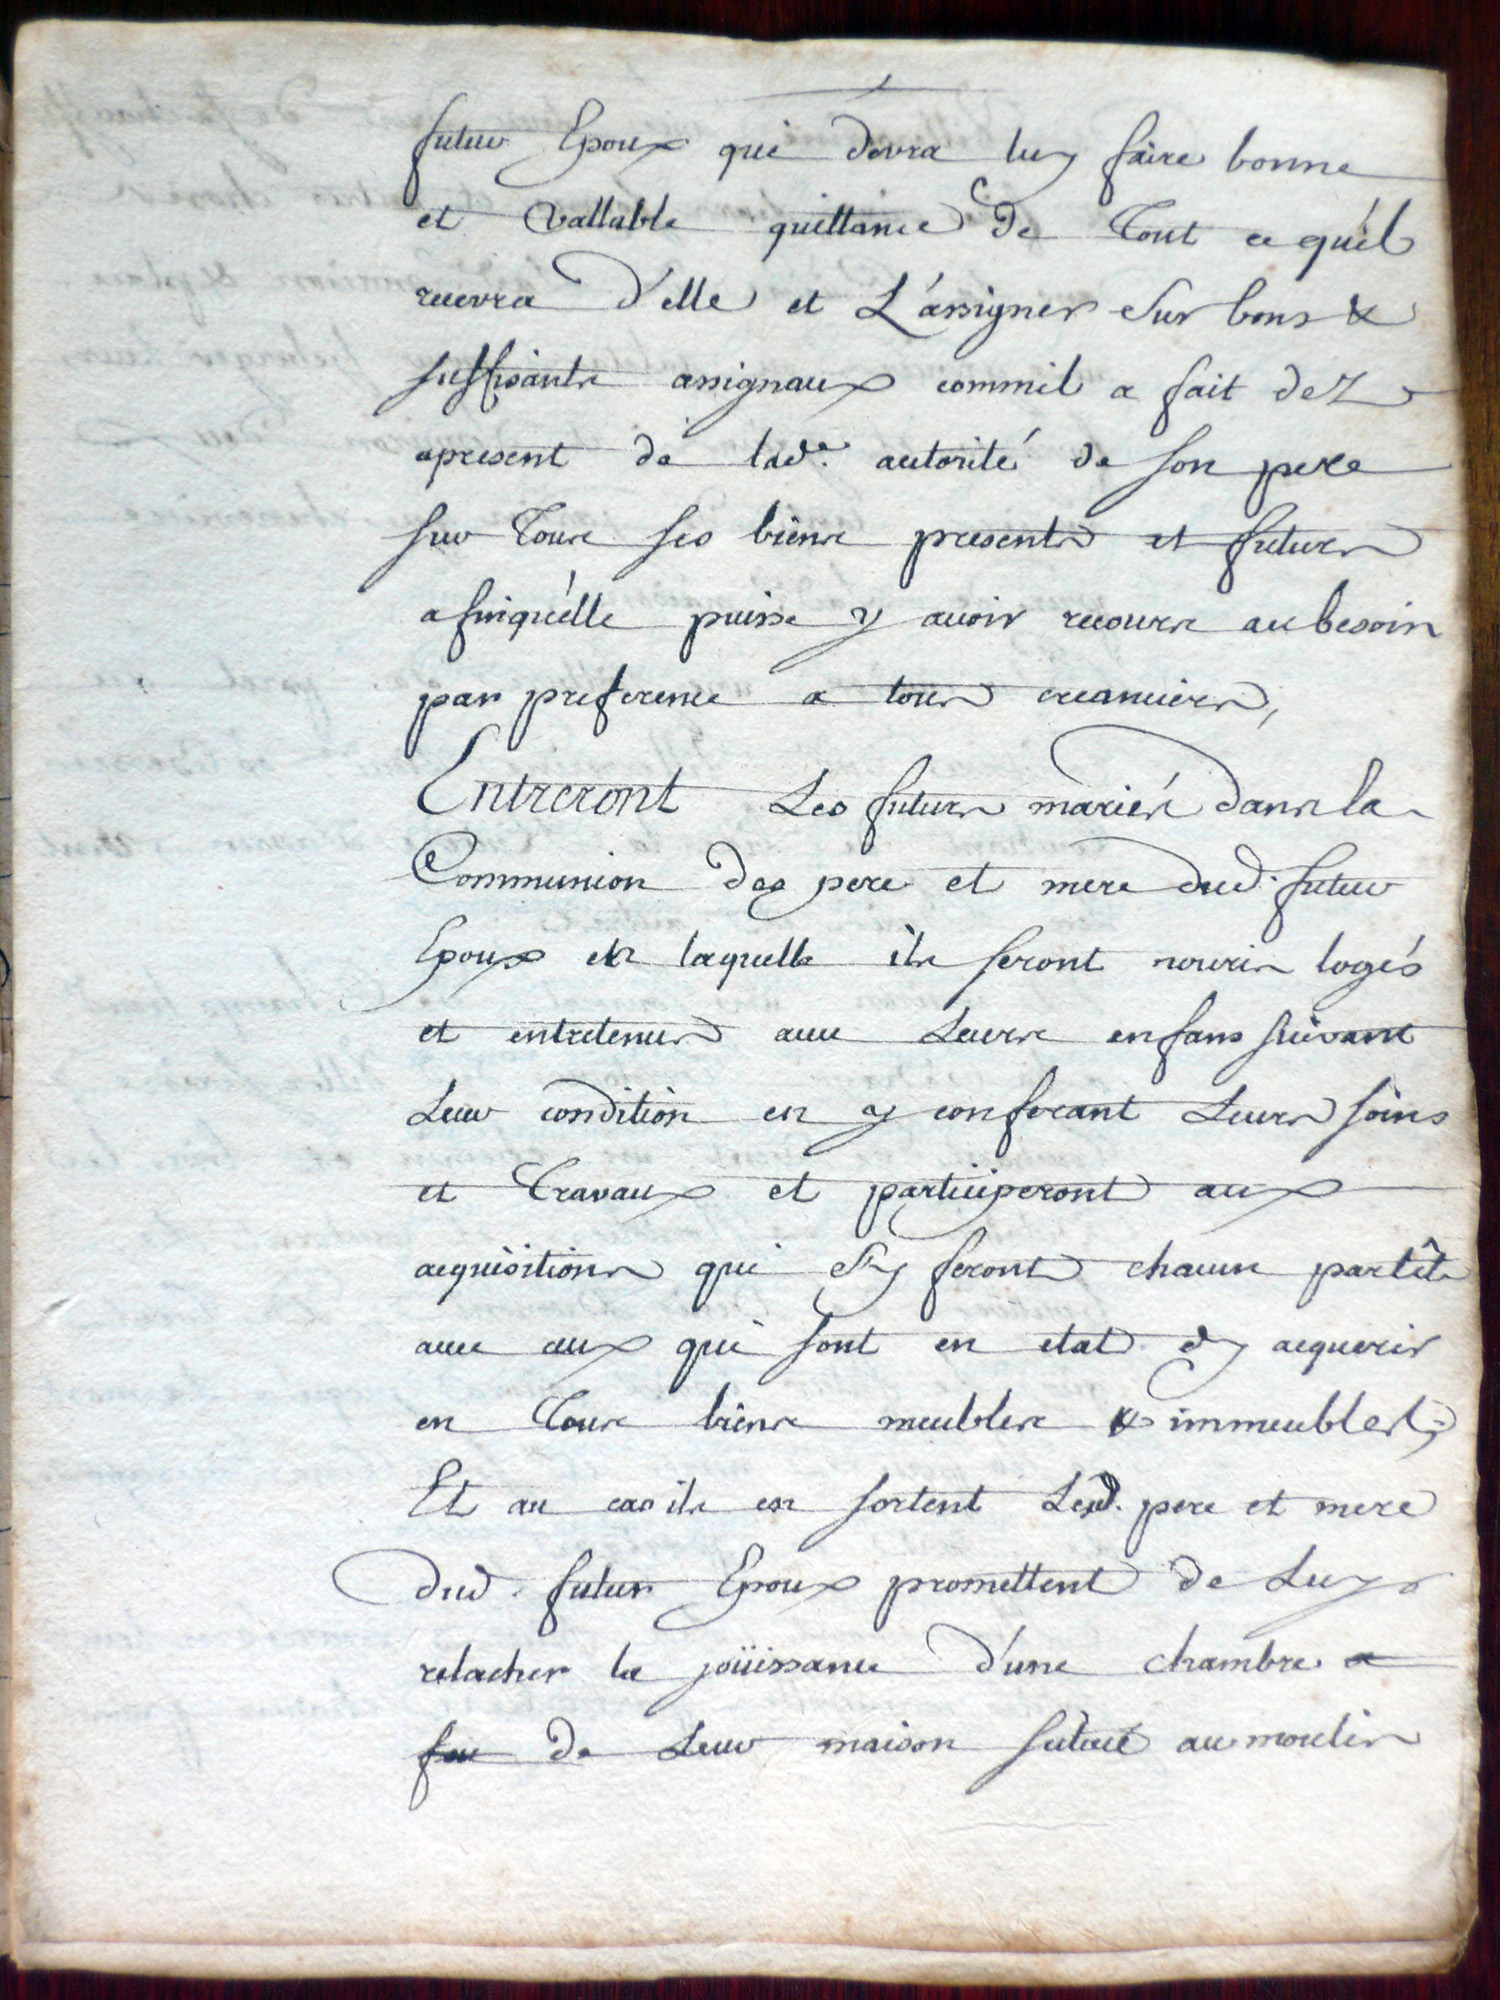 futur Epoux qui devra luy faire bonne
et vallable quittance de Tout ce qu'il
recevra d'elle et L'assigner Sur bons &
suffisants assignaux commil a fait dez
apresent de lad.e autorité de son pere
sur Tous ses biens presents et futurs
afinqu'elle puisse y avoir recours au besoin
par preference a tous creanciers,
Entreront Les futurs mariés dans la
Communion des pere et mere dud. futur
Epoux en laquelle ils seront nouris logés
et entretenus avec Leurs enfans suivant
Leur condition en y conferant Leurs soins
et Travaux et participeront aux
acquisitions qui s'y feront chacun par tête
avec ceux qui sont en etat d'y acquerir
en Tous biens meubles & immeubles;
Et au cas ils en sortent Lesd. pere et mere
dud. futur Epoux promettent de Luy
relacher la joüissance d'une chambre a
feu de Leur maison située au moulin